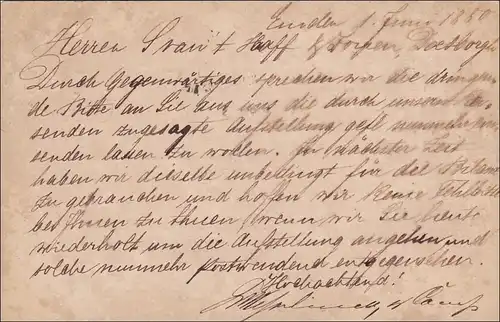 Emden 1. Juni 1880
Herren & Zonen, Doesborgh
Durch Gegenwärtiges sprechen wir die dringen
de Bitte an Sie aus uns die durch unsern
senden zugesagte Aufstellung gefl. nunmehr
senden lassen zu wollen. In nächster Zeit
haben wir dieselbe unbedingt für die
zu gebrauchen und hoffen wir keine
bei Ihnen zu thuen wenn wir Sie heute
wiederholt um die Aufstellung angehen und
solche nunmehr postwendend entgegensehen.
Hochachtend!